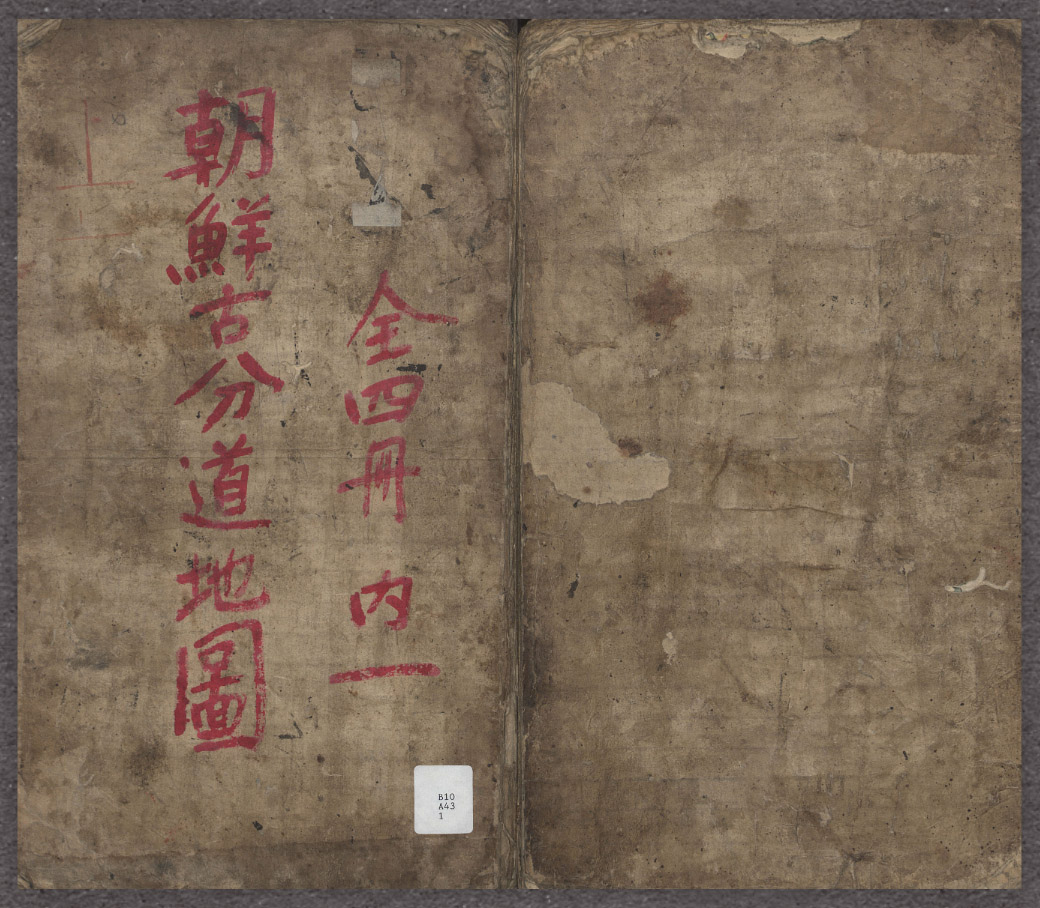 全四冊 内一
朝鮮古分道地圖
B10
A43
1